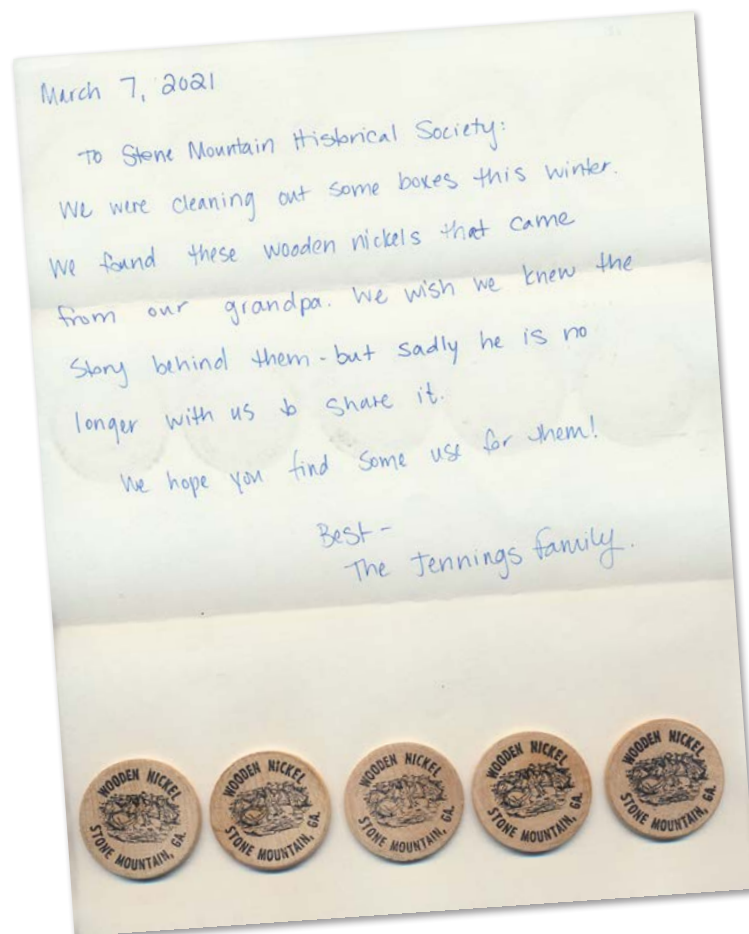 March 7, 2021
To Stone Mountain Historical Society:
We were cleaning out some boxes this winter.
We found these wooden nickels that came
from our grandpa. We wish we knew the
story behind them - but sadly he is no
longer with us to share it.
We hope you find some use for them!
Best -
The Jennings family.
WOODEN NICKEL
STONE MOUNTAIN, GA.
WOODEN NICKEL
STONE MOUNTAIN, GA.
WOODEN NICKEL
STONE MOUNTAIN, GA.
WOODEN NICKEL
STONE MOUNTAIN, GA.
WOODEN NICKEL
STONE MOUNTAIN, GA.